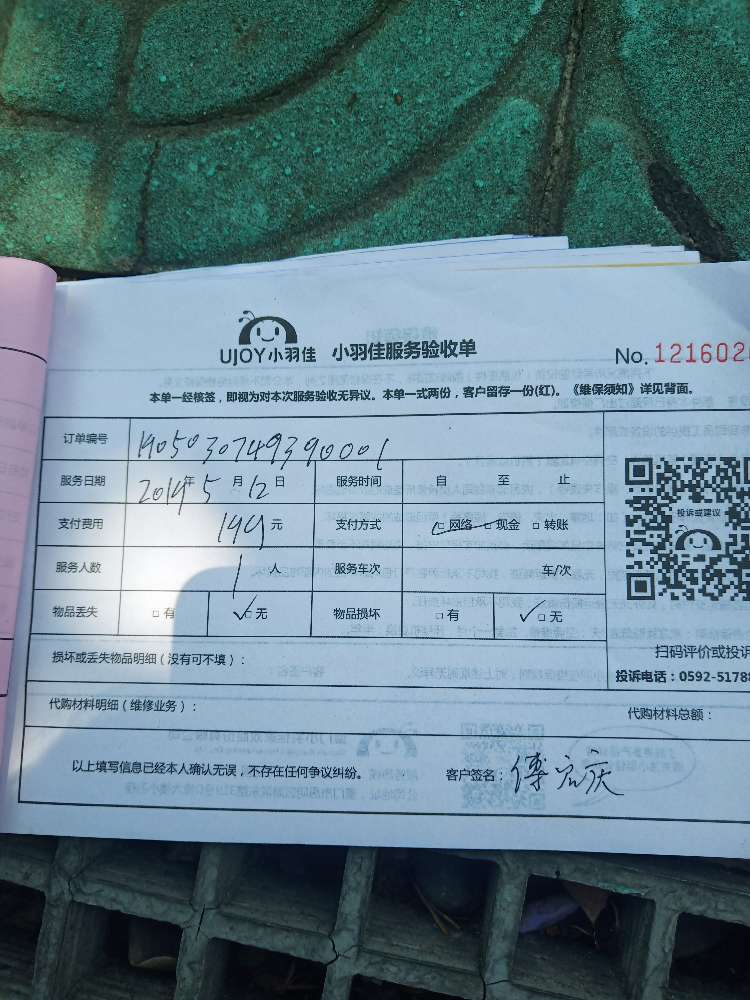 UJOY小羽佳 小羽佳服务验收单
No. 121602
本单一经核签，即视为对本次服务验收无异议。本单一式两份，客户留存一份(红)。《维保须知》详见背面。
订单编号 1905030749390001
服务日期 2019年5月12日 服务时间 自 至 止
支付费用 199元 支付方式 □网络 □现金 □转账
服务人数 1人 服务车次 车/次
物品丢失 □有 ✓□无 物品损坏 □有 ✓□无
投诉或建议
扫码评价或投诉
投诉电话：0592-51788
损坏或丢失物品明细（没有可不填）：
代购材料明细（维修业务）： 代购材料总额：
以上填写信息已经本人确认无误，不存在任何争议纠纷。 客户签名：傅宏庆